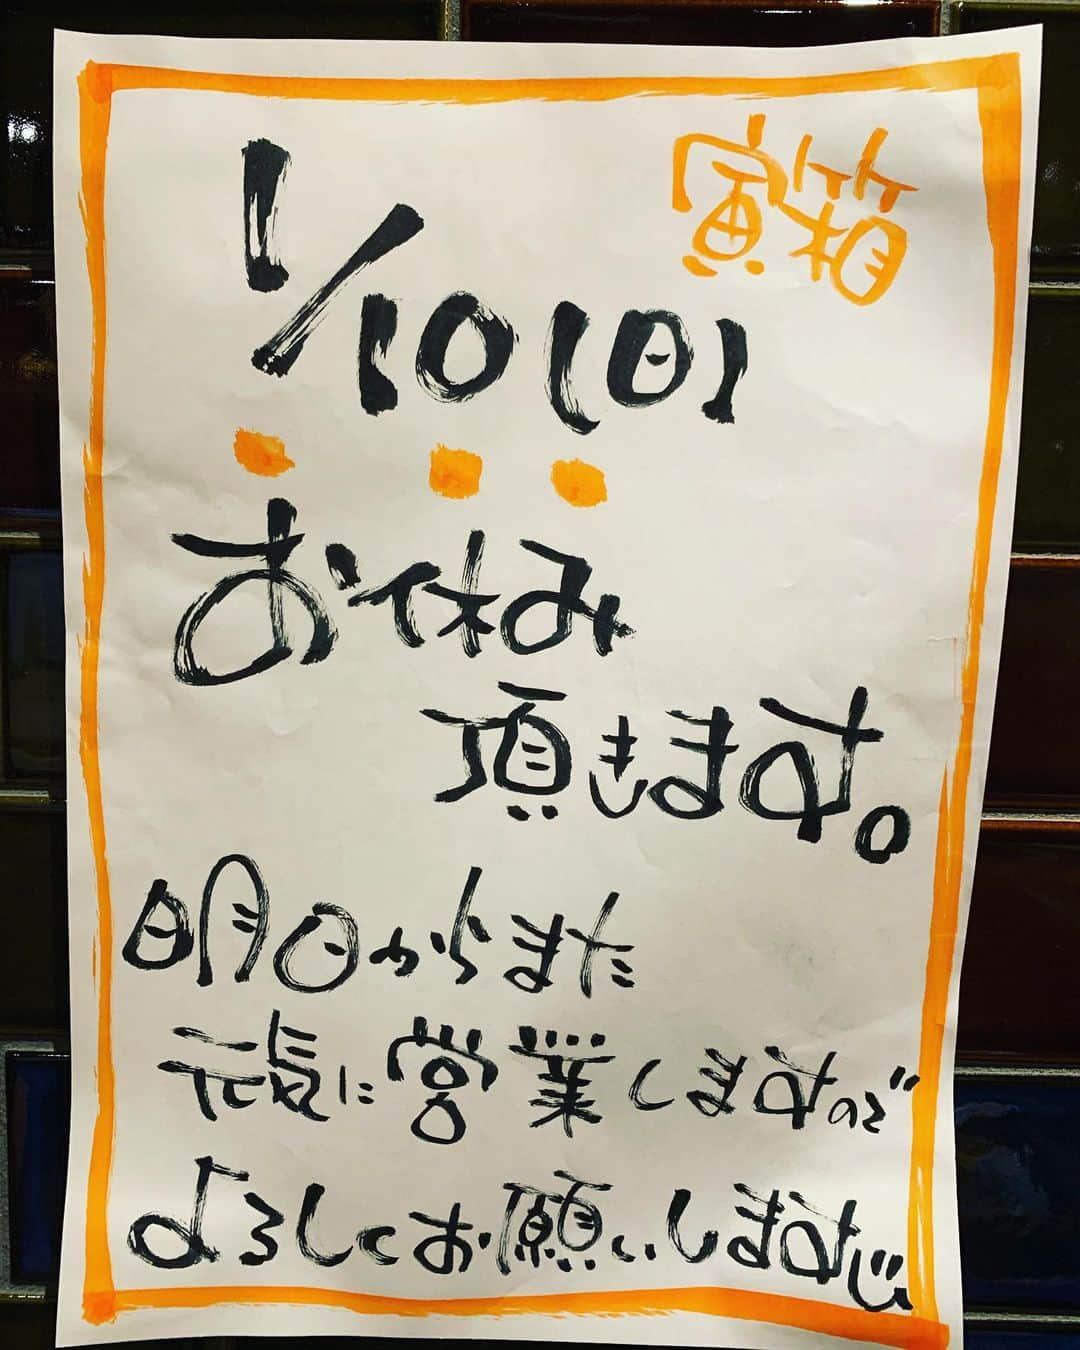 寅箱
1/10(日)
お休み
頂きます。
明日からまた
元気に営業しますので
よろしくお願いします